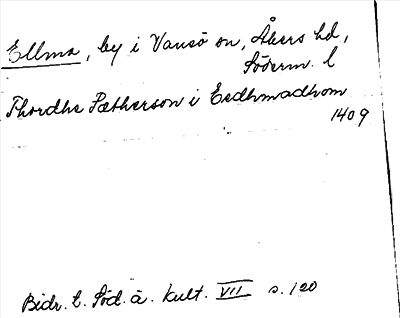 Ellma, by i Vansö sn, Åkers hd,
Söderm. l
Thordhe Pætherson i Eedhmadhom
1409
Bidr. t. Söd. ä. kult. VII s. 120